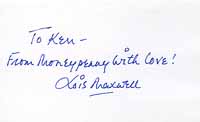 To Ken –
From Moneypenny with Love!
Lois Maxwell